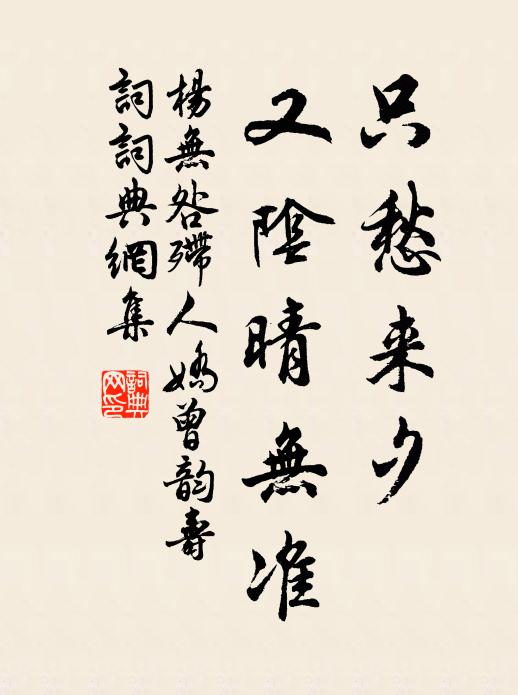 只愁来夕
又陰晴無准
楊無咎殢人嬌曾韵壽
詞詞典網集
詞典網印